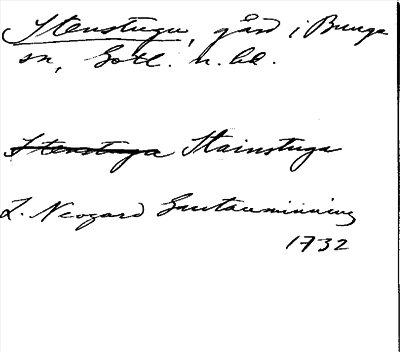 Stenstugu, gård i Bunge
sn, Gotl. n. hd.
Stenstuga Stainstuga
L. Neogard Gautauminning
1732